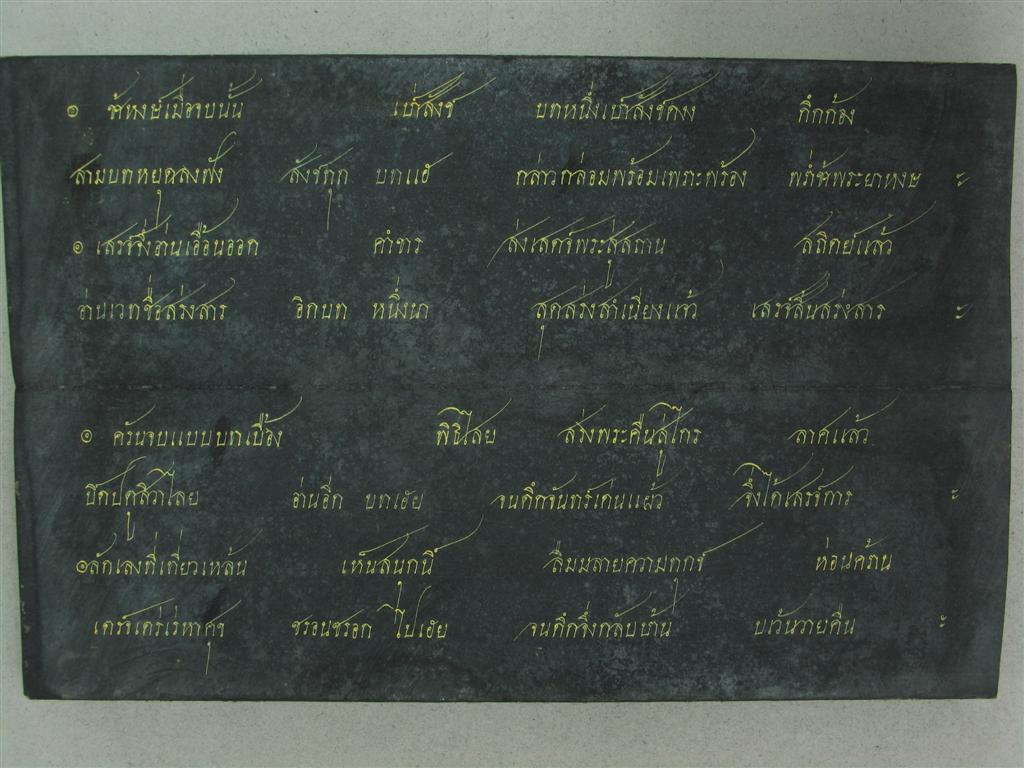 ๏ ช้าหงษ์เมื่อจบนั้น เป่าสังข์ บทหนึ่งเป่าสังข์คง กึกก้อง
สามบทหยุดลงฟัง สังข์ทุก บทแฮ กล่าวกล่อมพร้อมเพราะพร้อง พ่ำช้าพระยาหงษ ฯะ
๏ เสรจ์จึ่งอ่านเอื้อนออก คำชาร ส่งเสดจ์พระสู่สถาน สถิตย์แล้ว
อ่านเวทชื่อสรงสาร อิกบท หนึ่งนา สุดสรงสำเนียงแจ้ว เสรจ์สิ้นสรงสาร ฯะ
๏ ครั้นจบแบบบทเบื้อง พิธีไสย สรงพระคืนสู่ไกร ลาศแล้ว
ปิดปตูสิวาไลย อ่านอีก บทเฮย จนดึกจันทร์เดนแผ้ว จึ่งได้เสรจ์การ ฯะ
๏ ลักเลงที่เที่ยวเหล้น เห็นสนุกนี้ ลืมมลายความทุกข์ ห่อนคร้าน
เตร่เร่หาศุข ซรอนซรอก ไปเฮย จนดึกจึ่งกลับบ้าน บเว้นวายคืน ฯะ